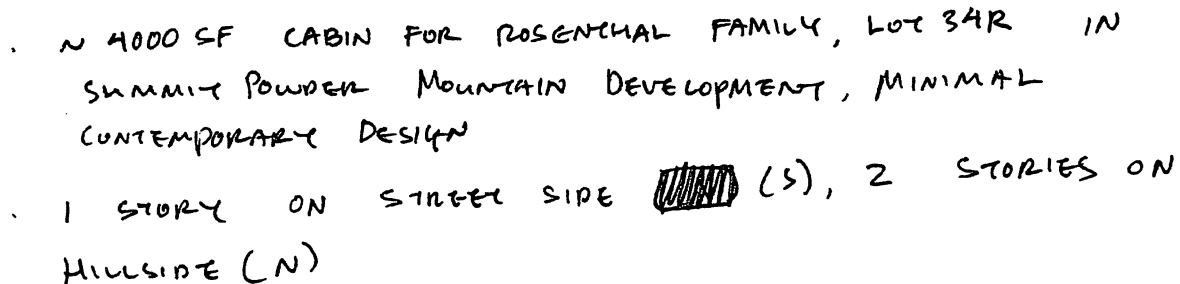 · ~ 4000 SF CABIN FOR ROSENTHAL FAMILY, LOT 34R IN
SUMMIT POWDER MOUNTAIN DEVELOPMENT, MINIMAL
CONTEMPORARY DESIGN
· 1 STORY ON STREET SIDE (S), 2 STORIES ON
HILLSIDE (N)